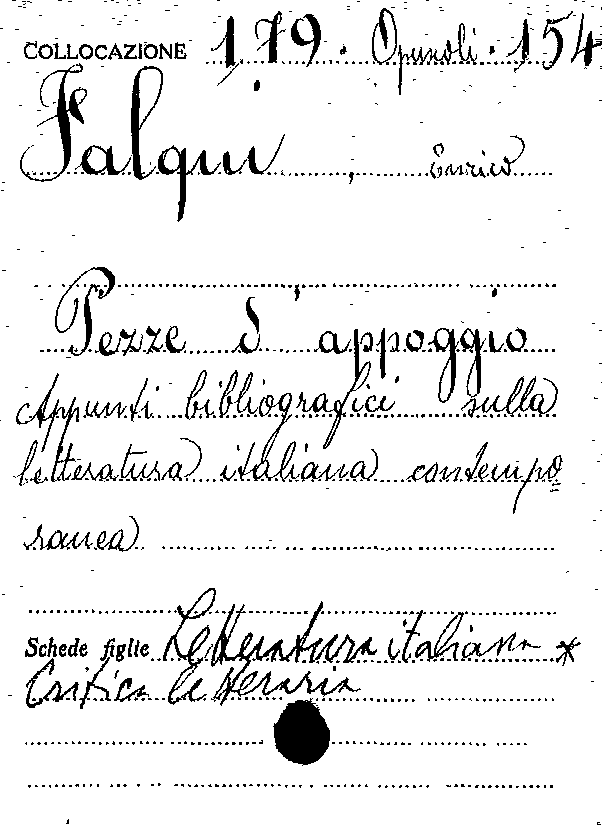 COLLOCAZIONE 179. Opuscoli. 154
Falqui, Enrico
Pezze d'appoggio
Appunti bibliografici sulla
letteratura italiana contempo=
ranea
Schede figlie Letteratura italiana *
Critica letteraria